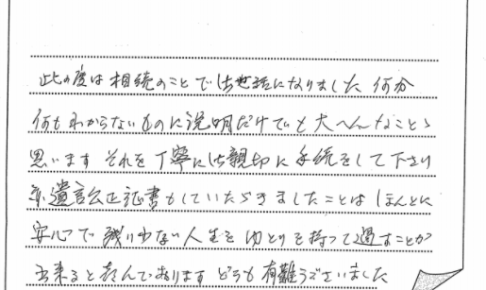 此の度は相続のことで御世話になりました 何分
何もわからないものに説明だけでも大へんなことゝ
思います それを丁寧に御親切に手続をして下さり
亦遺言公正証書もしていたゞきましたことはほんとに
安心で残り少ない人生をゆとりを持って過すことが
出来ると喜んでおります どうも有難うございました